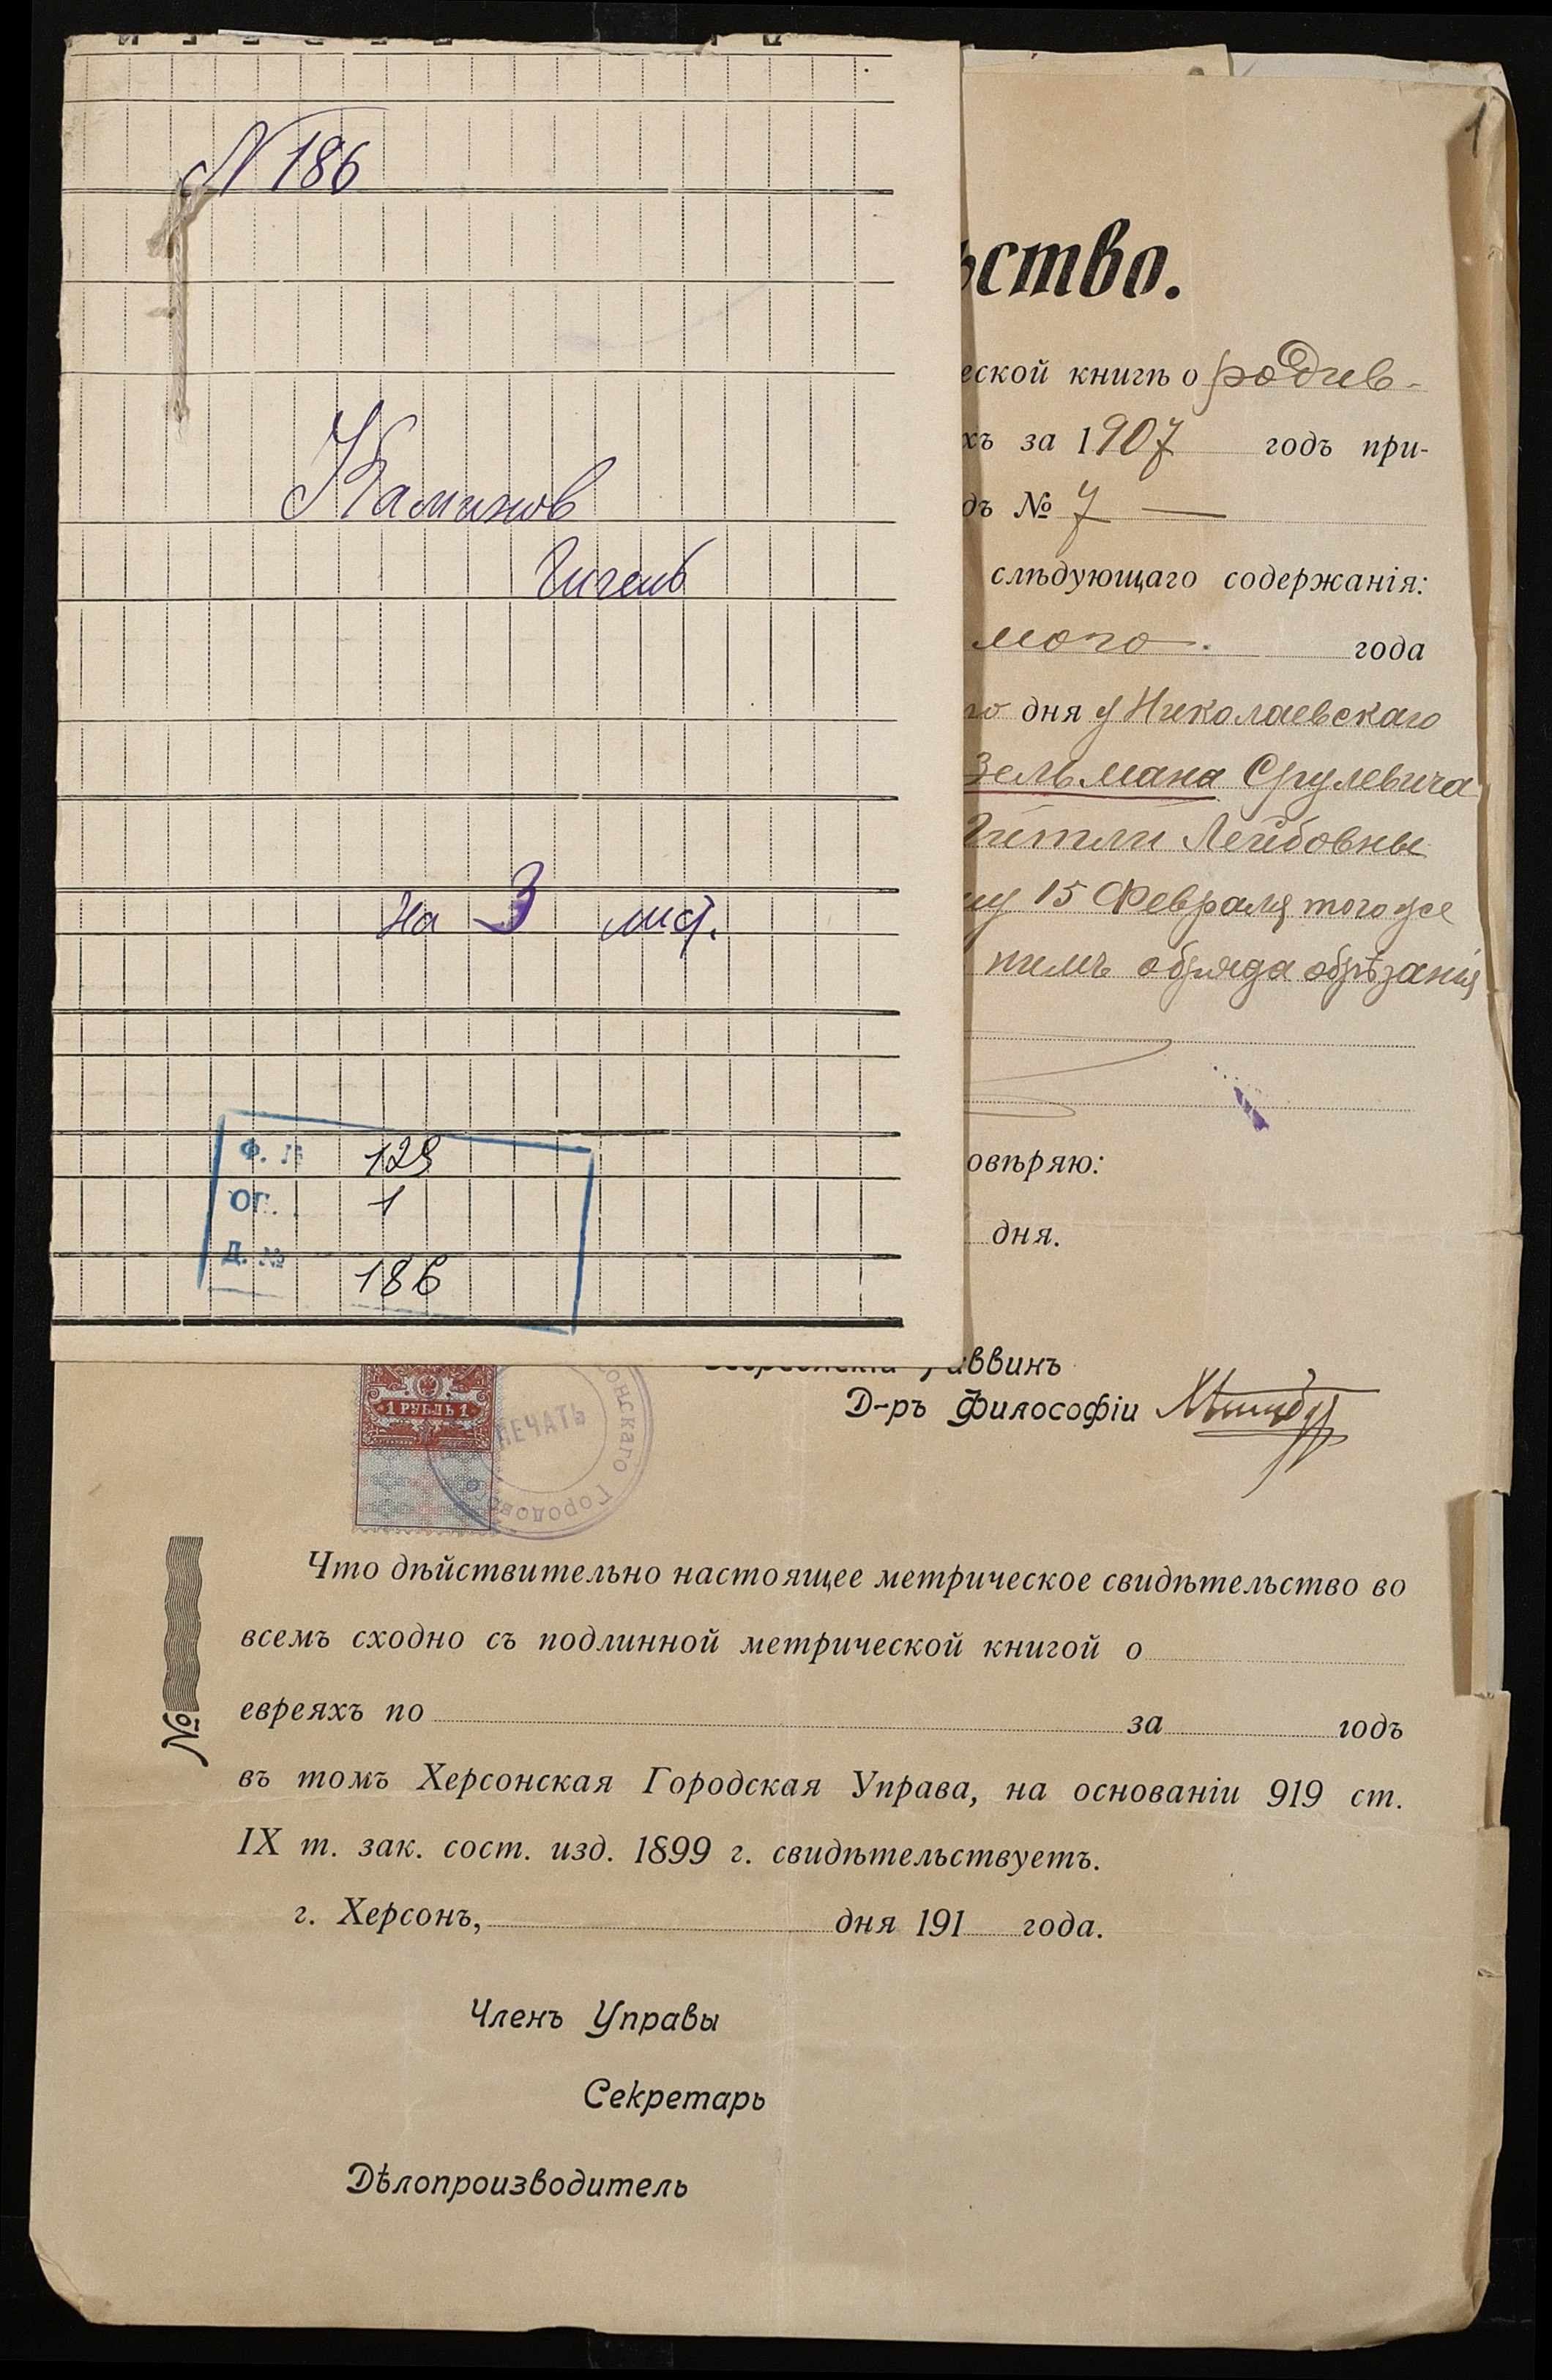 N 186
Каминов
на 3 лист.
Ф. №
129
ОП.
1
Д. №
186
1
ьство.
еской книгѣ о родив-
хъ за 1907 годъ при-
дъ № 7 —
слѣдующаго содержанія:
мого. года
го дня у Николаевскаго
Зельмана Срулевича
Гитли Лейбовны
му 15 Февраля того же
нимъ обряда обрѣзанія
овѣряю:
дня.
аввинъ
Д-ръ Философіи
1 РУБЛЬ 1
ПЕЧАТЬ
онскаго Городового
Что дѣйствительно настоящее метрическое свидѣтельство во
всемъ сходно съ подлинной метрической книгой о
евреяхъ по за годъ
въ томъ Херсонская Городская Управа, на основаніи 919 ст.
IX т. зак. сост. изд. 1899 г. свидѣтельствуетъ.
г. Херсонъ, дня 191 года.
№
Членъ Управы
Секретарь
Дѣлопроизводитель